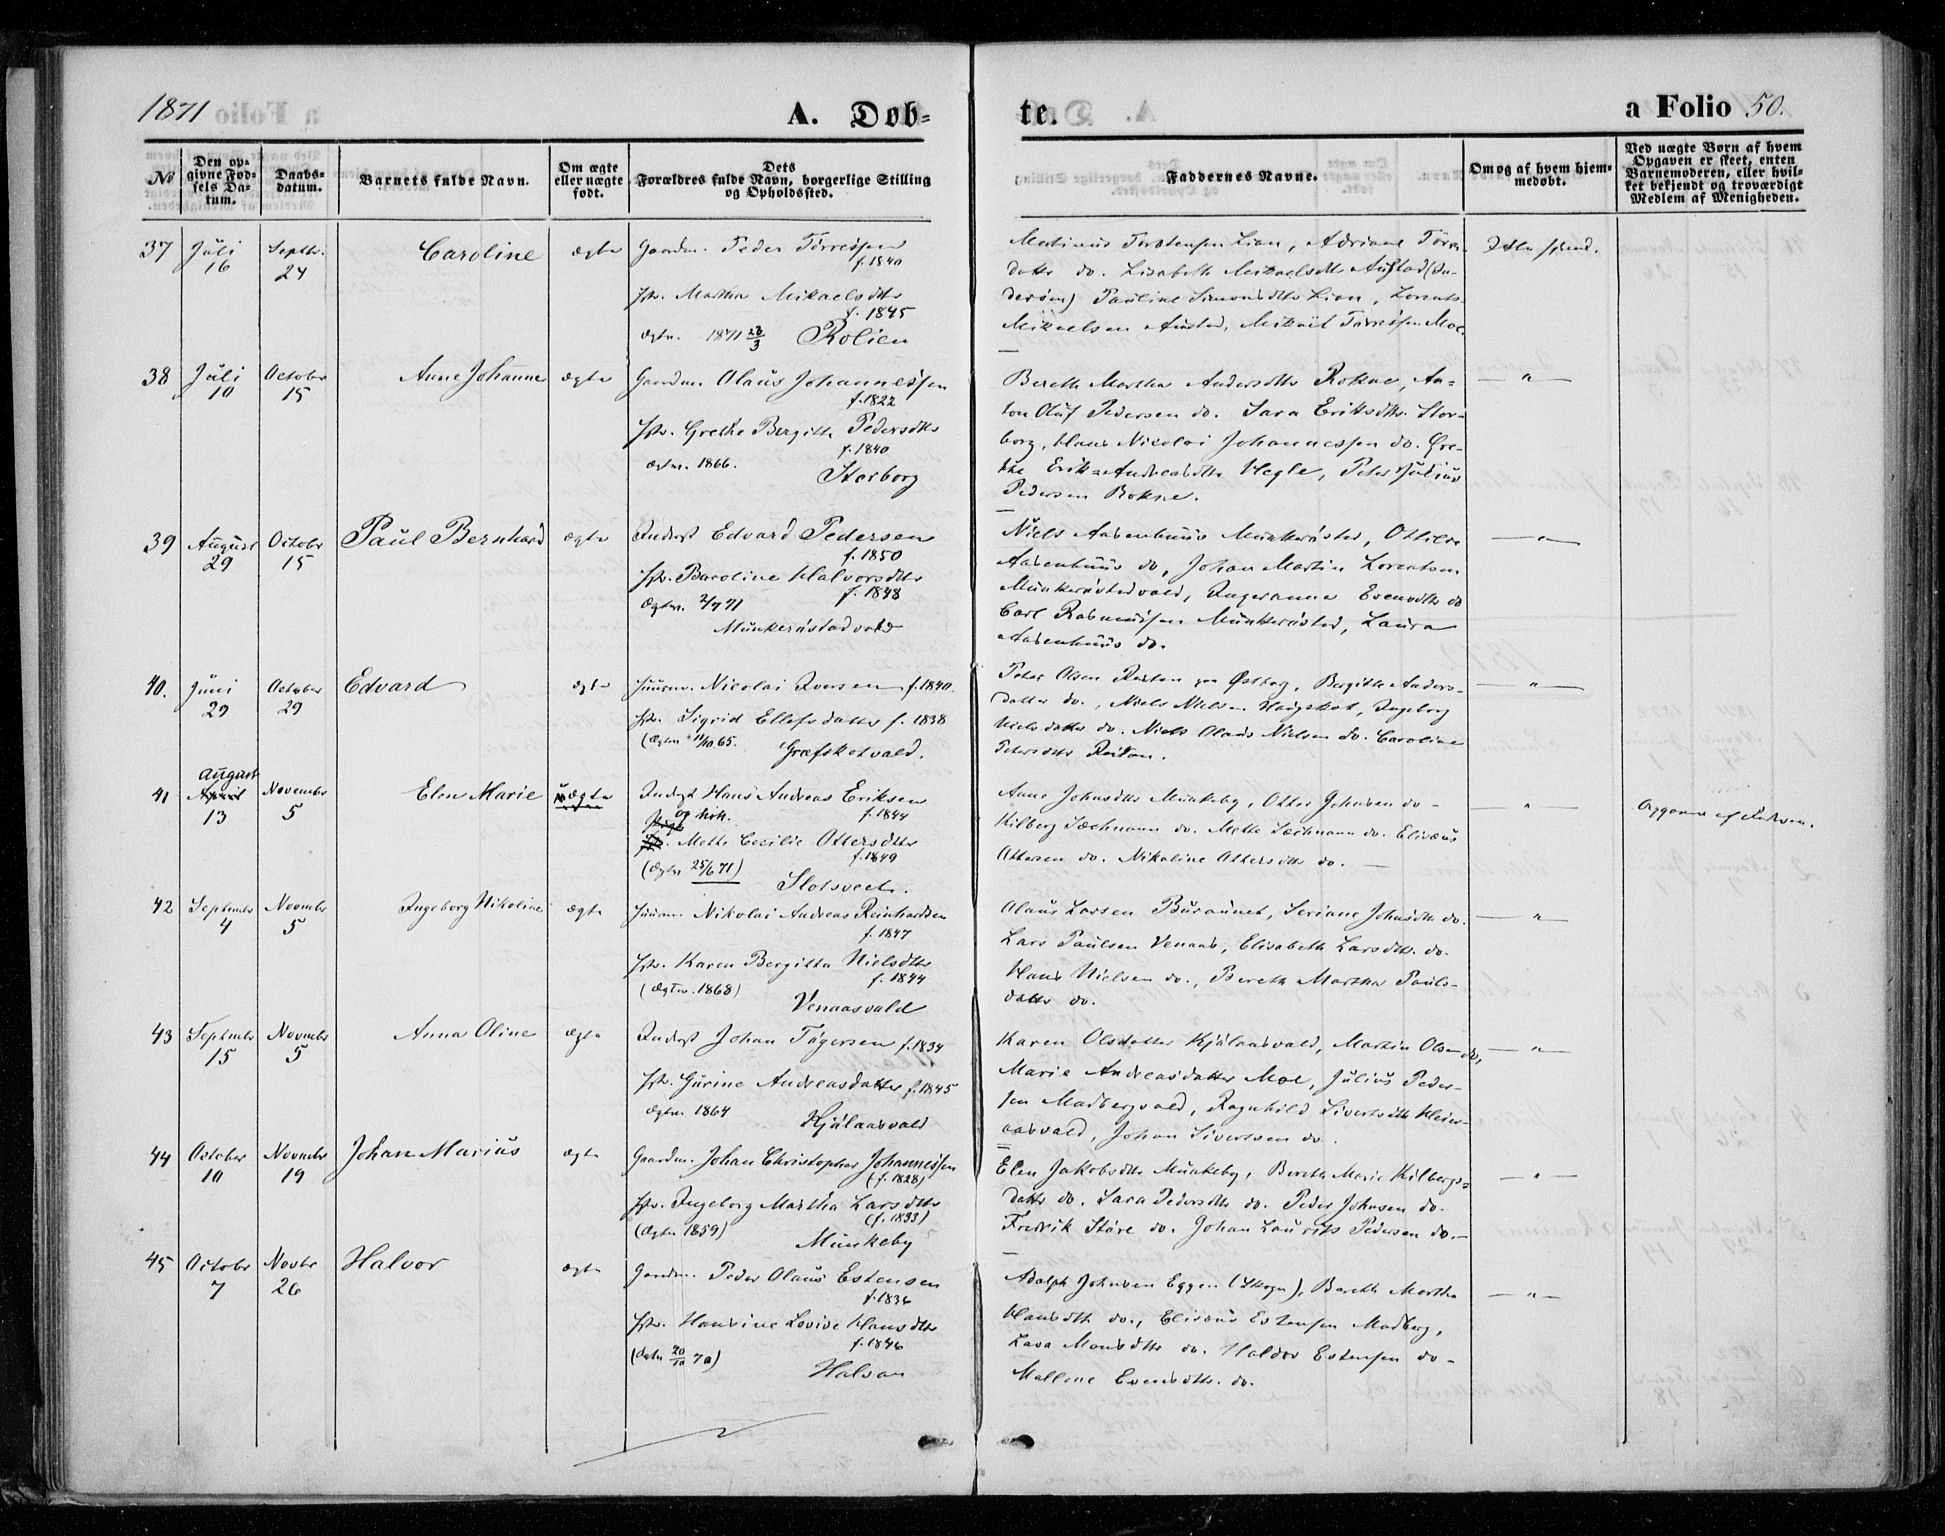 1871
A. Døb-
te.
a Folio 50.
No
Den op-
givne Fød-
sels Da-
tum.
Daabs-
datum.
Barnets fulde Navn.
Om ægte
eller uægte
født.
Dets
Forældres fulde Navn, borgerlige Stilling
og Opholdssted.
Faddernes Navne.
Om og af hvem hjem-
medøbt.
Ved uægte Børn af hvem
Opgaven er skeet, enten
Barnemoderen, eller hvil-
ket bekjendt og troværdigt
Medlem af Menigheden.
37 Juli 16 Septbr. 24 Caroline ægte
Gaardm. Peder Tørresen
f. 1840
Martha Mikaelsdtr
f. 1845
ægtev. 1871 23/3 Rolien
Martinus Torstensen Lian, Adriane Tørris-
datter do. Lisabeth Mikaelsdtr Austad (In-
derøen) Pauline Simonsdtr Lian, Lorents
Mikaelsen Austad, Mikael Tørrissen Moe.
38 Juli 10 October 15 Anne Johanne ægte
Gaardm. Olaus Johannessen
f. 1822
Grethe Bergitte Pedersdtr
f. 1840
ægtev. 1866.
Storborg
Bereth Martha Andersdtr Rokne, An-
ton Oluf Pedersen do. Sara Eriksdtr. Stor-
borg, Hans Nicolai Johannessen do. Gre-
the Andreasdtr Hegle, Peter Julius
Pedersen Rokne.
— " —
39 August 29 Octobr 15 Paul Bernhard ægte
Inderst Edvard Pedersen
f. 1850
Baroline Halvorsdtr
f. 1848
Ægtev. 2/7 71
Munkerøstadvald
Niels Aabenhuus Munkerøstad, Ottilie
Aabenhuus do, Johan Martin Lorentsen
Munkerøstadvald, Ingeranna Evensdtr do
Carl Rasmussen Munkerøstad, Laura
Aabenhuus do.
— " —
40. Juni 29 October 29 Edvard ægte
Huusm. Nicolai Iversen f. 1840.
Sigrid Ellefsdatter f. 1838
(Ægtev 11/10 65. Græfsketvald.
Peter Olsen Reitan Østborg, Bergitte Anders-
datter do., Niels Nielsen, Ingeborg
Nielsdatter do. Niels Olaus Nielsen do. Caroline
Petersdtr Reitan.
— " —
41 August April 13 November 5 Elen Marie uægte
Inderst Hans Andreas Eriksen
f. 1844
Mette Cecilie Ottersdtr
f. 1849
(Ægtev 25/6 71)
Slotsveet.
Anne Johnsdtr Munkeby, Otter Johnsen do -
Kilberg Lochmann do. Mette Lochmann do. Elisæus
Ottersen do. Nikoline Ottersdtr do. —
— " —
42 September 4 Novembr 5 Ingeborg Nikoline ægte
Huusm. Nikolai Andreas Reinhardsen
f. 1847
Karen Bergitta Nielsdtr
f. 1844
(Ægtev. 1868)
Venaasvald
Olaus Larsen Buraunet, Seriane Johnsdtr do.
Lars Paulsen Venaas, Elisabeth Larsdtr. do.
Hans Nielsen do., Bereth Martha Pauls-
datter do.
— " —
43 September 15 Novembr 5 Anna Oline ægte
Inderst Johan Tøgersen f. 1834
Gurine Andreasdatter f. 1845
Ægtev. 1864
Hjelaasvald
Karen Olsdatter Hjelaasvald, Martin Olsen do,
Marie Andreasdatter Moe, Julius Peder-
sen Madbergvald, Ragnhild Sivertsdtr
Johan Sivertsen do.
— " —
44 October 10 Novembr 19 Johan Marius ægte
Gaardm. Johan Christopher Johannessen
(f. 1828)
Ingeborg Martha Larsdtr
(f. 1833)
(Ægtev 1859)
Munkeby
Elen Jakobsdtr Munkeby, Bereth Marie Kilbergs-
datter do. Sara Pedersdtr do. Peder Johnsen do.
Fredrik Støre do. Johan Laurits Pedersen do.—
— " —
45 Octobr 7 Novbr 26 Halvor ægte
Gaardm. Peder Olaus Estensen
f. 1836
Hansine Lovise Hansdtr
f. 1846
(Ægtev 20/10 70)
Halsan
Adolph Johnsen Eggen (Skogn), Bereth Martha
Hansdtr do., Elisæus Estensen Madberg,
Lava Monsdtr do. Haldor Estensen do -
Mallene Evensdtr. do.
— " —